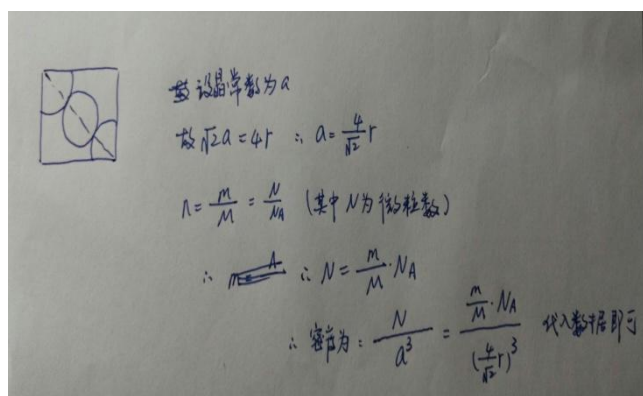 设晶常数为a
故√2a=4r ∴ a=4/√2 r
n=m/M=N/NA (其中N为微粒数)
∴ ∴ N=m/M·NA
∴ 密度为: N/a³ = (m/M·NA)/(4/√2 r)³ 代入数据即可